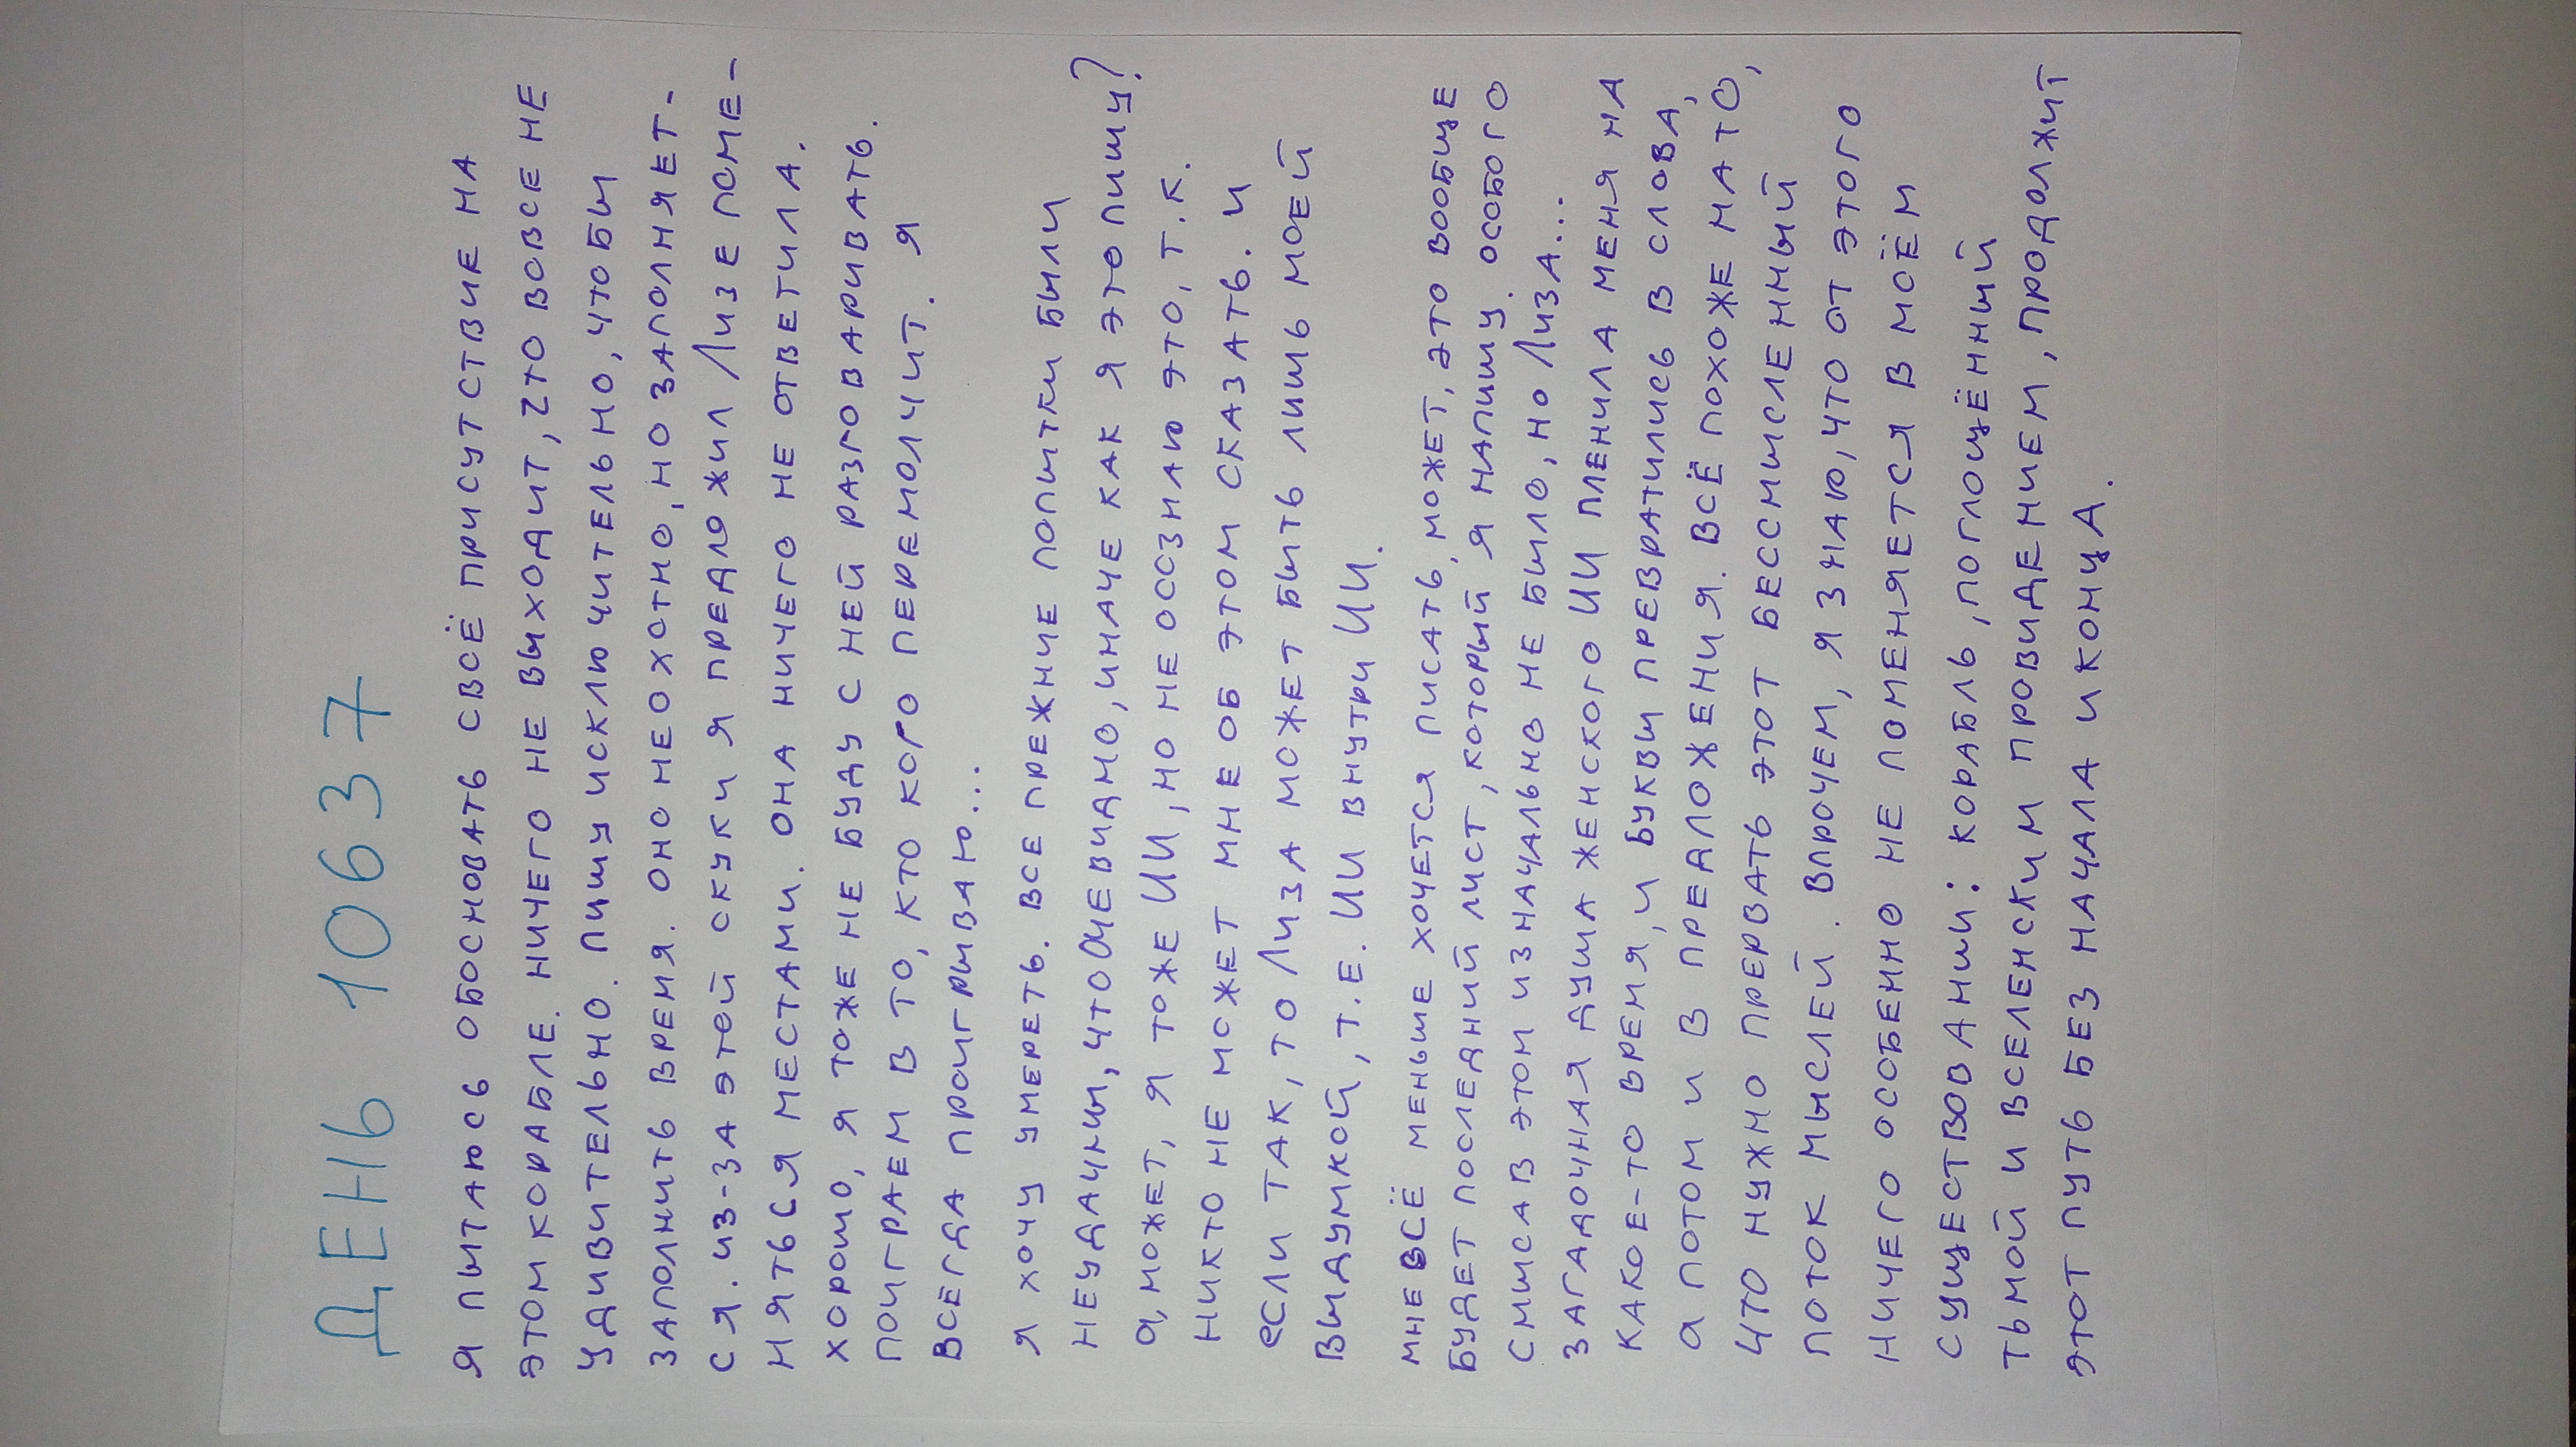 ДЕНЬ 10637
Я ПЫТАЮСЬ ОБОСНОВАТЬ СВОЁ ПРИСУТСТВИЕ НА
ЭТОМ КОРАБЛЕ. НИЧЕГО НЕ ВЫХОДИТ, ЧТО ВОВСЕ НЕ
УДИВИТЕЛЬНО. ПИШУ ИСКЛЮЧИТЕЛЬНО, ЧТОБЫ
ЗАПОЛНИТЬ ВРЕМЯ. ОНО НЕОХОТНО, НО ЗАПОЛНЯЕТ-
СЯ. ИЗ-ЗА ЭТОЙ СКУКИ Я ПРЕДЛОЖИЛ ЛИЗЕ ПОМЕ-
НЯТЬСЯ МЕСТАМИ. ОНА НИЧЕГО НЕ ОТВЕТИЛА.
ХОРОШО, Я ТОЖЕ НЕ БУДУ С НЕЙ РАЗГОВАРИВАТЬ.
ПОИГРАЕМ В ТО, КТО КОГО ПЕРЕМОЛЧИТ. Я
ВСЕГДА ПРОИГРЫВАЮ...
Я ХОЧУ УМЕРЕТЬ. ВСЕ ПРЕЖНИЕ ПОПЫТКИ БЫЛИ
НЕУДАЧНЫ, ЧТО ОЧЕВИДНО, ИНАЧЕ КАК Я ЭТО ПИШУ?
А, МОЖЕТ, Я ТОЖЕ ИИ, НО НЕ ОСОЗНАЮ ЭТО, Т.К.
НИКТО НЕ МОЖЕТ МНЕ ОБ ЭТОМ СКАЗАТЬ. И
ЕСЛИ ТАК, ТО ЛИЗА МОЖЕТ БЫТЬ ЛИШЬ МОЕЙ
ВЫДУМКОЙ, Т.Е. ИИ ВНУТРИ ИИ.
МНЕ ВСЁ МЕНЬШЕ ХОЧЕТСЯ ПИСАТЬ, МОЖЕТ, ЭТО ВООБЩЕ
БУДЕТ ПОСЛЕДНИЙ ЛИСТ, КОТОРЫЙ Я НАПИШУ. ОСОБОГО
СМЫСЛА В ЭТОМ ИЗНАЧАЛЬНО НЕ БЫЛО, НО ЛИЗА...
ЗАГАДОЧНАЯ ДУША ЖЕНСКОГО ИИ ПЛЕНИЛА МЕНЯ НА
КАКОЕ-ТО ВРЕМЯ, И БУКВЫ ПРЕВРАТИЛИСЬ В СЛОВА,
А ПОТОМ И В ПРЕДЛОЖЕНИЯ. ВСЁ ПОХОЖЕ НА ТО,
ЧТО НУЖНО ПРЕРВАТЬ ЭТОТ БЕССМЫСЛЕННЫЙ
ПОТОК МЫСЛЕЙ. ВПРОЧЕМ, Я ЗНАЮ, ЧТО ОТ ЭТОГО
НИЧЕГО ОСОБЕННО НЕ ПОМЕНЯЕТСЯ В МОЁМ
СУЩЕСТВОВАНИИ: КОРАБЛЬ, ПОГЛОЩЁННЫЙ
ТЬМОЙ И ВСЕЛЕНСКИМ ПРОВИДЕНИЕМ, ПРОДОЛЖИТ
ЭТОТ ПУТЬ БЕЗ НАЧАЛА И КОНЦА.